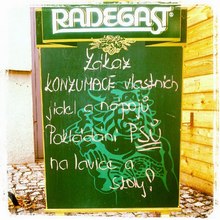 RADEGAST
Zákaz
KONZUMACE vlastních
jídel a nápojů
Pokládání PSŮ
na lavice a
stoly!